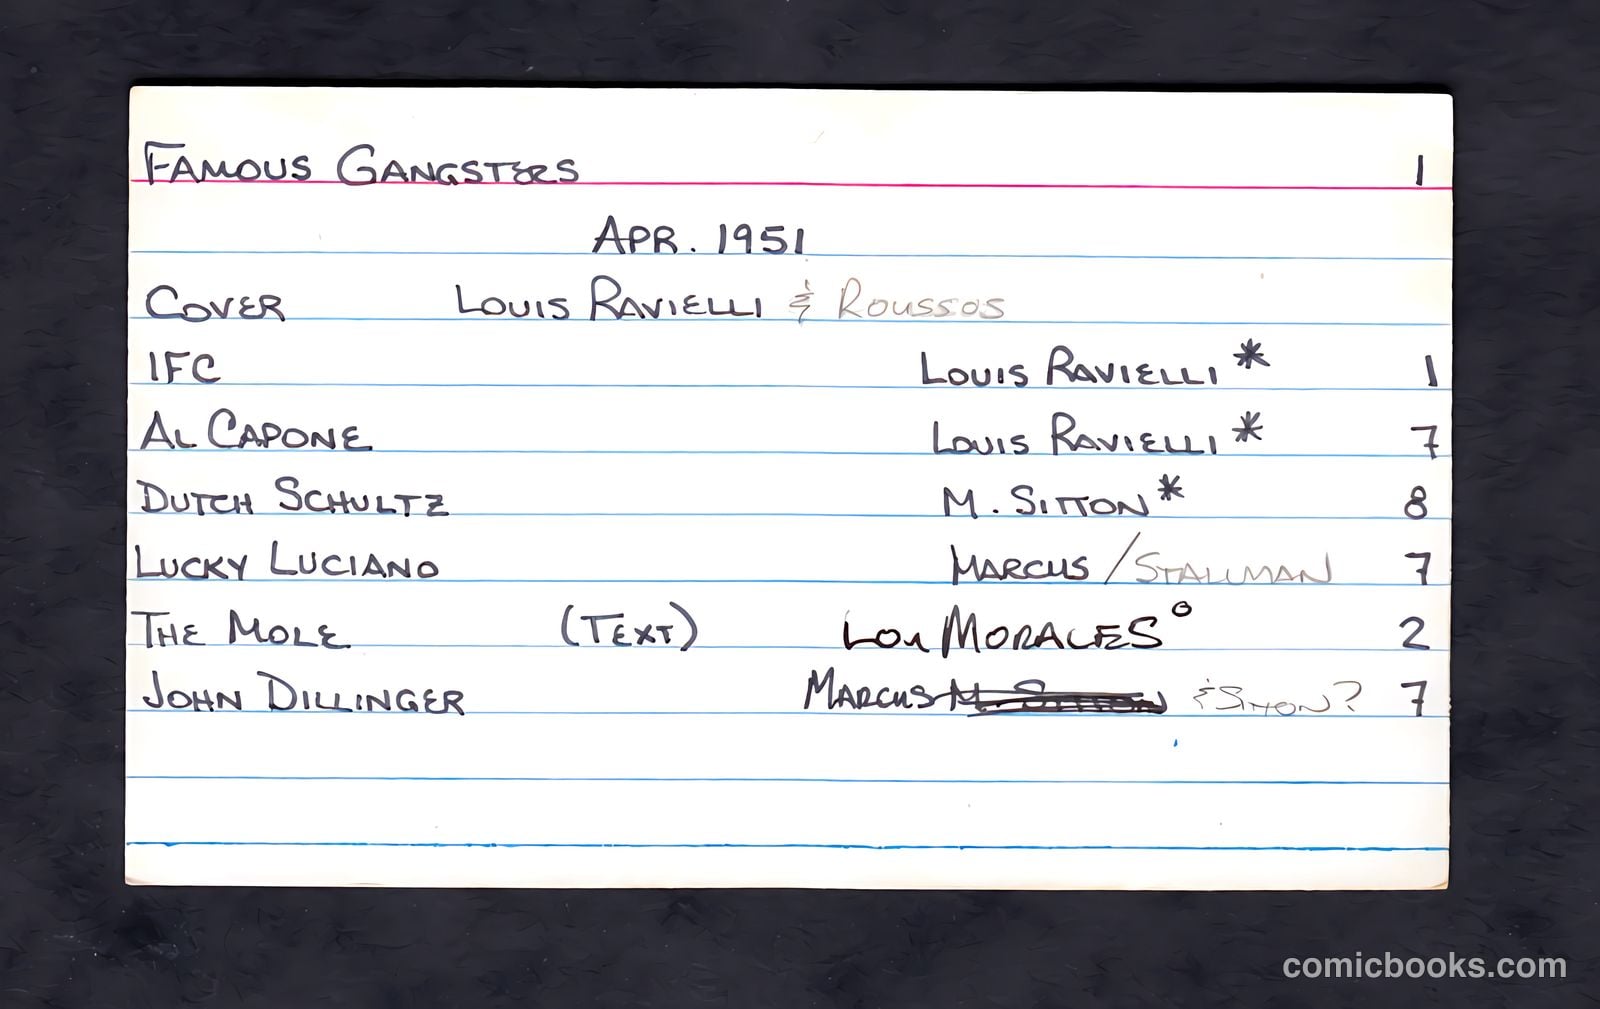 FAMOUS GANGSTERS 1
APR. 1951
COVER LOUIS RAVIELLI & ROUSSOS
IFC LOUIS RAVIELLI * 1
AL CAPONE LOUIS RAVIELLI * 7
DUTCH SCHULTZ M. SITTON * 8
LUCKY LUCIANO MARCUS / STALLMAN 7
THE MOLE (TEXT) LOU MORALES° 2
JOHN DILLINGER MARCUS M. SITTON & SITTON? 7
comicbooks.com